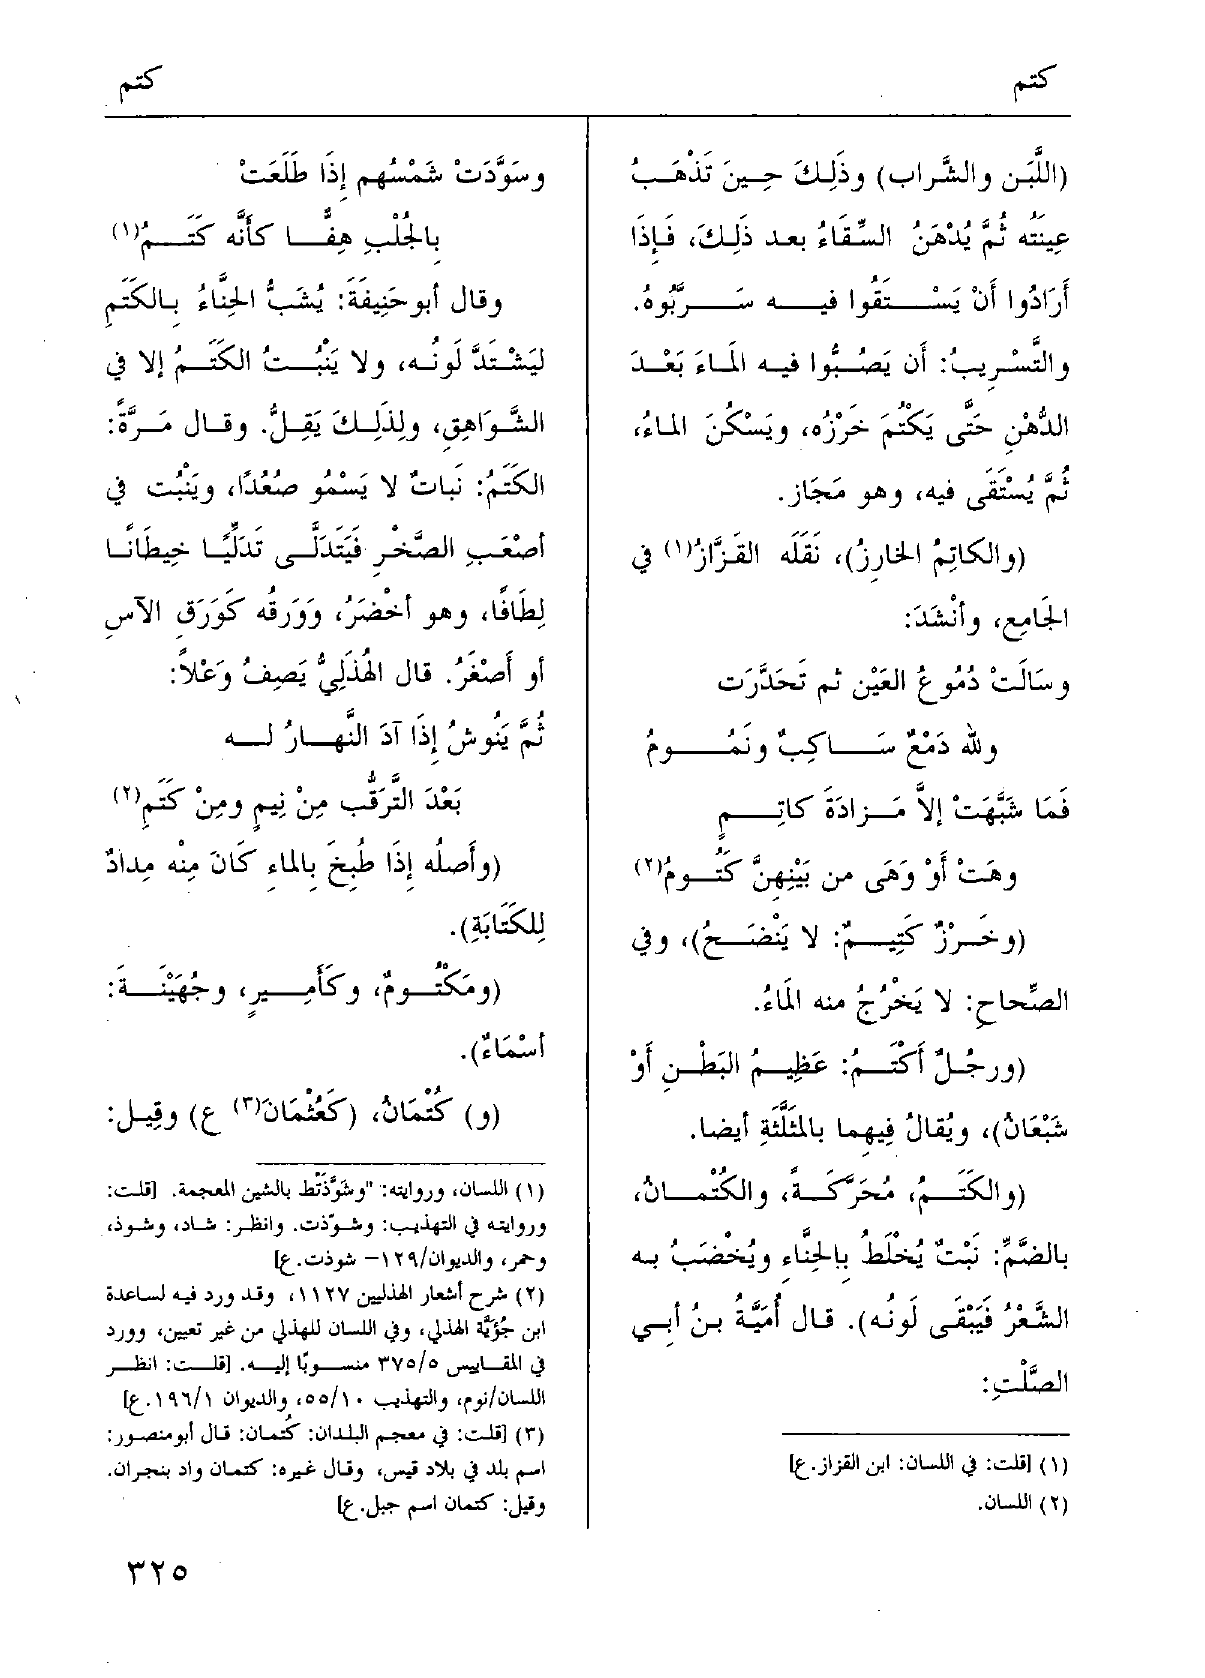 كتم
كتم
(اللَّبَن والشَّراب) وذَلِكَ حِينَ تَذْهَبُ
عِينَتُه ثُمَّ يُدْهَنُ السِّقَاءُ بعد ذَلِكَ، فَإِذَا
أَرَادُوا أَنْ يَسْتَقُوا فيه سَرَّبُوهُ.
والتَّسْرِيبُ: أن يَصُبُّوا فيه المَاءَ بَعْدَ
الدُّهْنِ حَتَّى يَكْتُمَ خَرْزُه، ويَسْكُنَ الماءُ،
ثُمَّ يُسْتَقَى فيه، وهو مَجَاز.
(والكَاتِمُ الخارِزُ)، نَقَلَه القَزَّازُ(١) في
الجَامِعِ، وأَنْشَدَ:
وسَالَتْ دُمُوعُ العَيْنِ ثم تَحَدَّرَت
ولله دَمْعٌ سَاكِبٌ ونَمُومُ
فَمَا شَبَّهَتْ إلاَّ مَزادَةَ كاتِمٍ
وهَتْ أَوْ وَهَى من بَيْنِهِنَّ كَتُومُ(٢)
(وخَرْزٌ كَتِيمٌ: لا يَنْضَحُ)، وفي
الصِّحاحِ: لا يَخْرُجُ منه المَاءُ.
(ورجُلٌ أَكْتَمُ: عَظِيمُ البَطْنِ أَوْ
شَبْعَانُ)، ويُقالُ فِيهما بالمُثَلَّثَةِ أيضا.
(والكَتَمُ، مُحَرَّكَةً، والكُتْمانُ،
بالضَّمِّ: نَبْتٌ يُخْلَطُ بِالحِنَّاءِ ويُخْضَبُ به
الشَّعْرُ فَيَبْقَى لَونُه). قال أُمَيَّةُ بنُ أبي
الصَّلْتِ:
(١) [قلت: في اللسان: ابن القزاز.ع]
(٢) اللسان.
وسَوَّدَتْ شَمْسُهم إِذَا طَلَعَتْ
بِالجُلْبِ هِفًّا كأنَّه كَتَمُ(١)
وقال أبو حَنِيفَةَ: يُشَبُّ الحِنَّاءُ بِالكَتَمِ
لِيَشْتَدَّ لَونُه، ولا يَنْبُتُ الكَتَمُ إلا في
الشَّوَاهِقِ، ولِذَلِكَ يَقِلُّ. وقال مَرَّةً:
الكَتَمُ: نَباتٌ لا يَسْمُو صُعُدًا، ويَنْبُت في
أَصْعَبِ الصَّخْرِ فَيَتَدَلَّى تَدَلِّيًا خِيطَانًا
لِطَافًا، وهو أخْضَرُ، وَوَرقُه كَوَرَقِ الآسِ
أو أَصْغَرُ. قال الهُذَلِيُّ يَصِفُ وَعْلاً:
ثُمَّ يَنُوشُ إِذَا آدَ النَّهارُ له
بَعْدَ التَّرَقُّبِ مِنْ نِيمٍ ومِنْ كَتَمِ(٢)
(وأَصلُه إِذَا طُبِخَ بِالماءِ كَانَ مِنْه مِدادٌ
لِلكَتَابَةِ).
(ومَكْتُومٌ، وكَأَمِيرٍ، وجُهَيْنَةَ:
أسْمَاءٌ).
(و) كُتْمَانُ، (كَعُثْمَانَ(٣) ع) وقِيل:
(١) اللسان، وروايته: "وشَوَّذَتْ" بالشين المعجمة. [قلت:
وروايته في التهذيب: وشوّذت. وانظر: شاد، وشوذ،
وحمر، والديوان/١٢٩– شوذت.ع]
(٢) شرح أشعار الهذليين ١١٢٧، وقد ورد فيه لساعدة
ابن جُؤيَّة الهذلي، وفي اللسان للهذلي من غير تعيين، وورد
في المقاييس ٣٧٥/٥ منسوبًا إليه. [قلت: انظر
اللسان/نوم، والتهذيب ٥٥/١٠، والديوان ١٩٦/١.ع]
(٣) [قلت: في معجم البلدان: كُتمان: قال أبومنصور:
اسم بلد في بلاد قيس، وقال غيره: كتمان واد بنجران.
وقيل: كتمان اسم جبل.ع]
٣٢٥